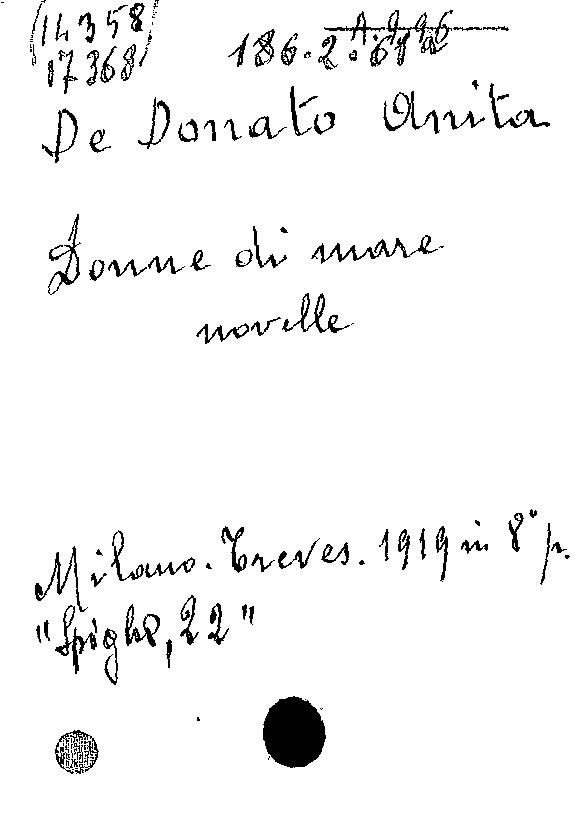 (14358
17368)
186.2.
De Donato Anita
Donne di mare
novelle
Milano. Treves. 1919 in 8° p.
"Spighe, 22"